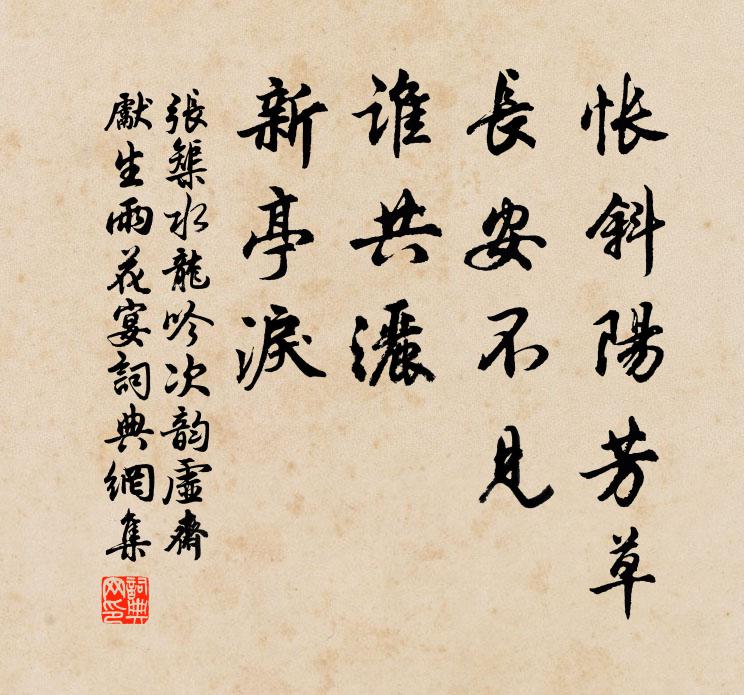 悵斜陽芳草
長安不見
誰共灑
新亭淚
張榘水龍吟次韵虛齋
獻生雨花宴詞典網集
詞典
網印